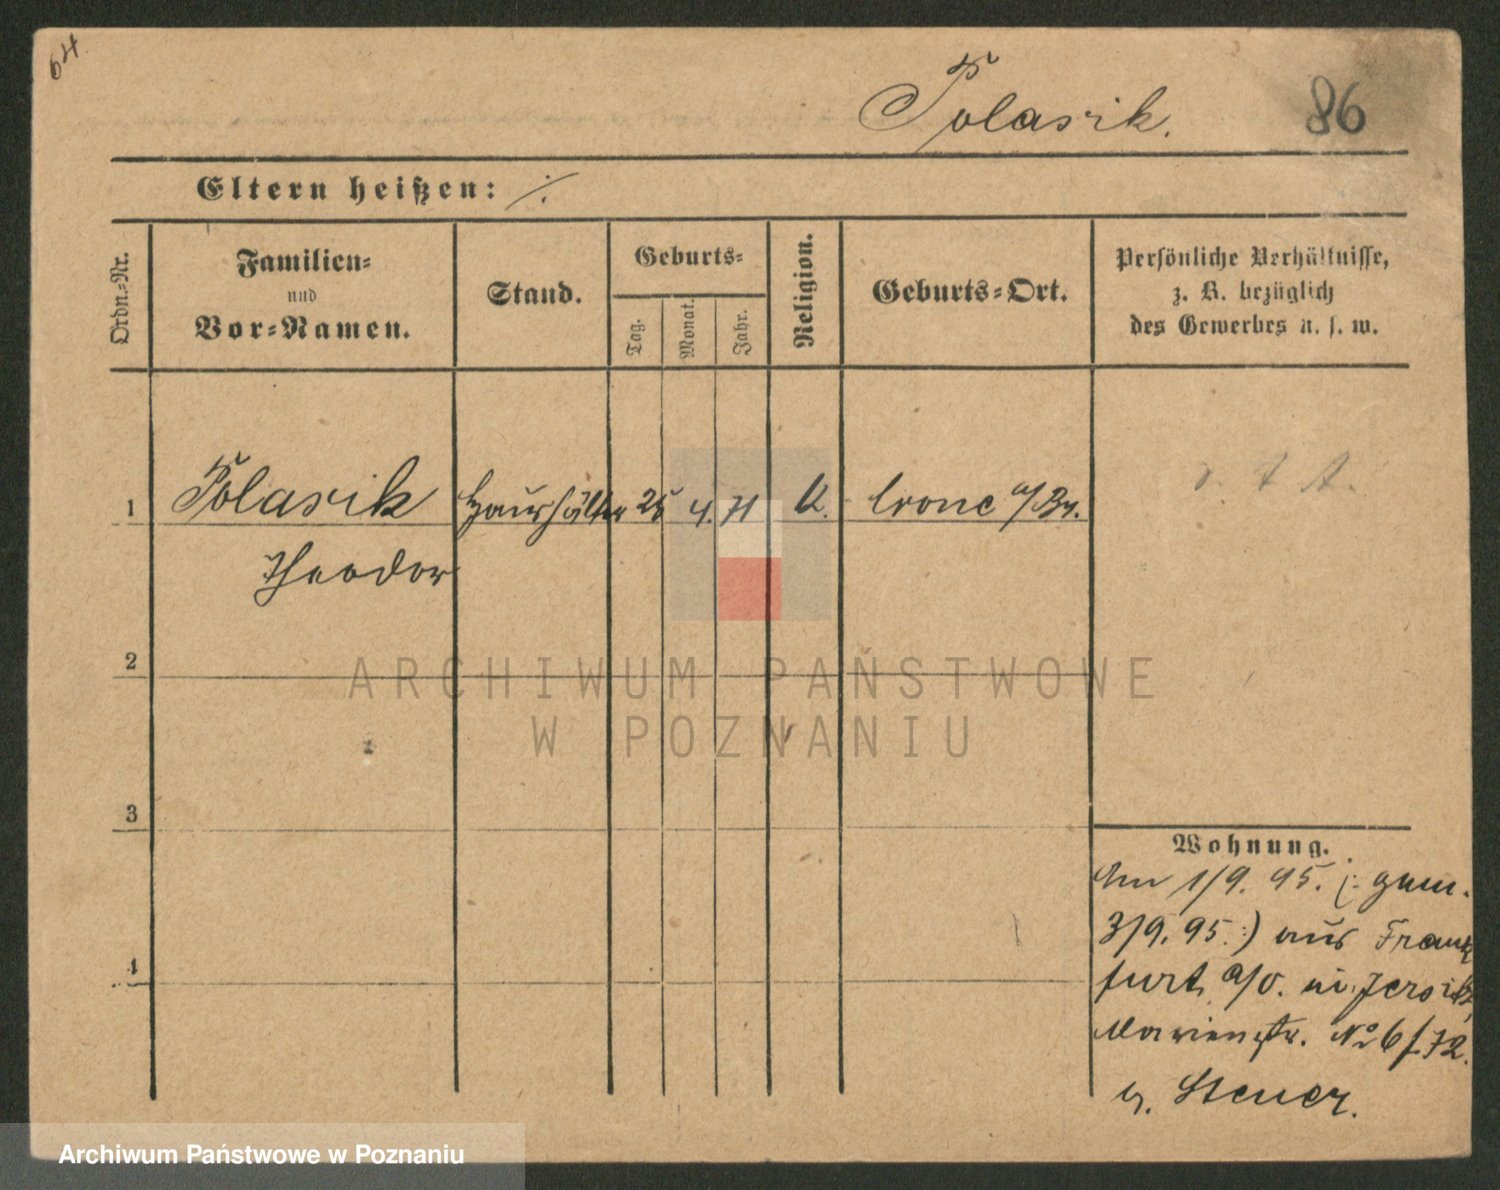 64
Polasik.
86
Eltern heißen: ./.
Ordn.-Nr.
Familien-
und
Vor-Namen.
Stand.
Geburts-
Tag.
Monat.
Jahr.
Religion.
Geburts-Ort.
Persönliche Verhältnisse,
z. B. bezüglich
des Gewerbes u. s. w.
1
Polasik
Theodor
Haushälter
25
4.
71
k.
Crone a/Br.
2
3
4
Wohnung.
Am 1/9. 95. (: gem.
3/9. 95. :) aus Frank
furt a/O. Jersitz,
Marienstr. No 6 f. 72.
Steuer.
ARCHIWUM PAŃSTWOWE
W POZNANIU
Archiwum Państwowe w Poznaniu